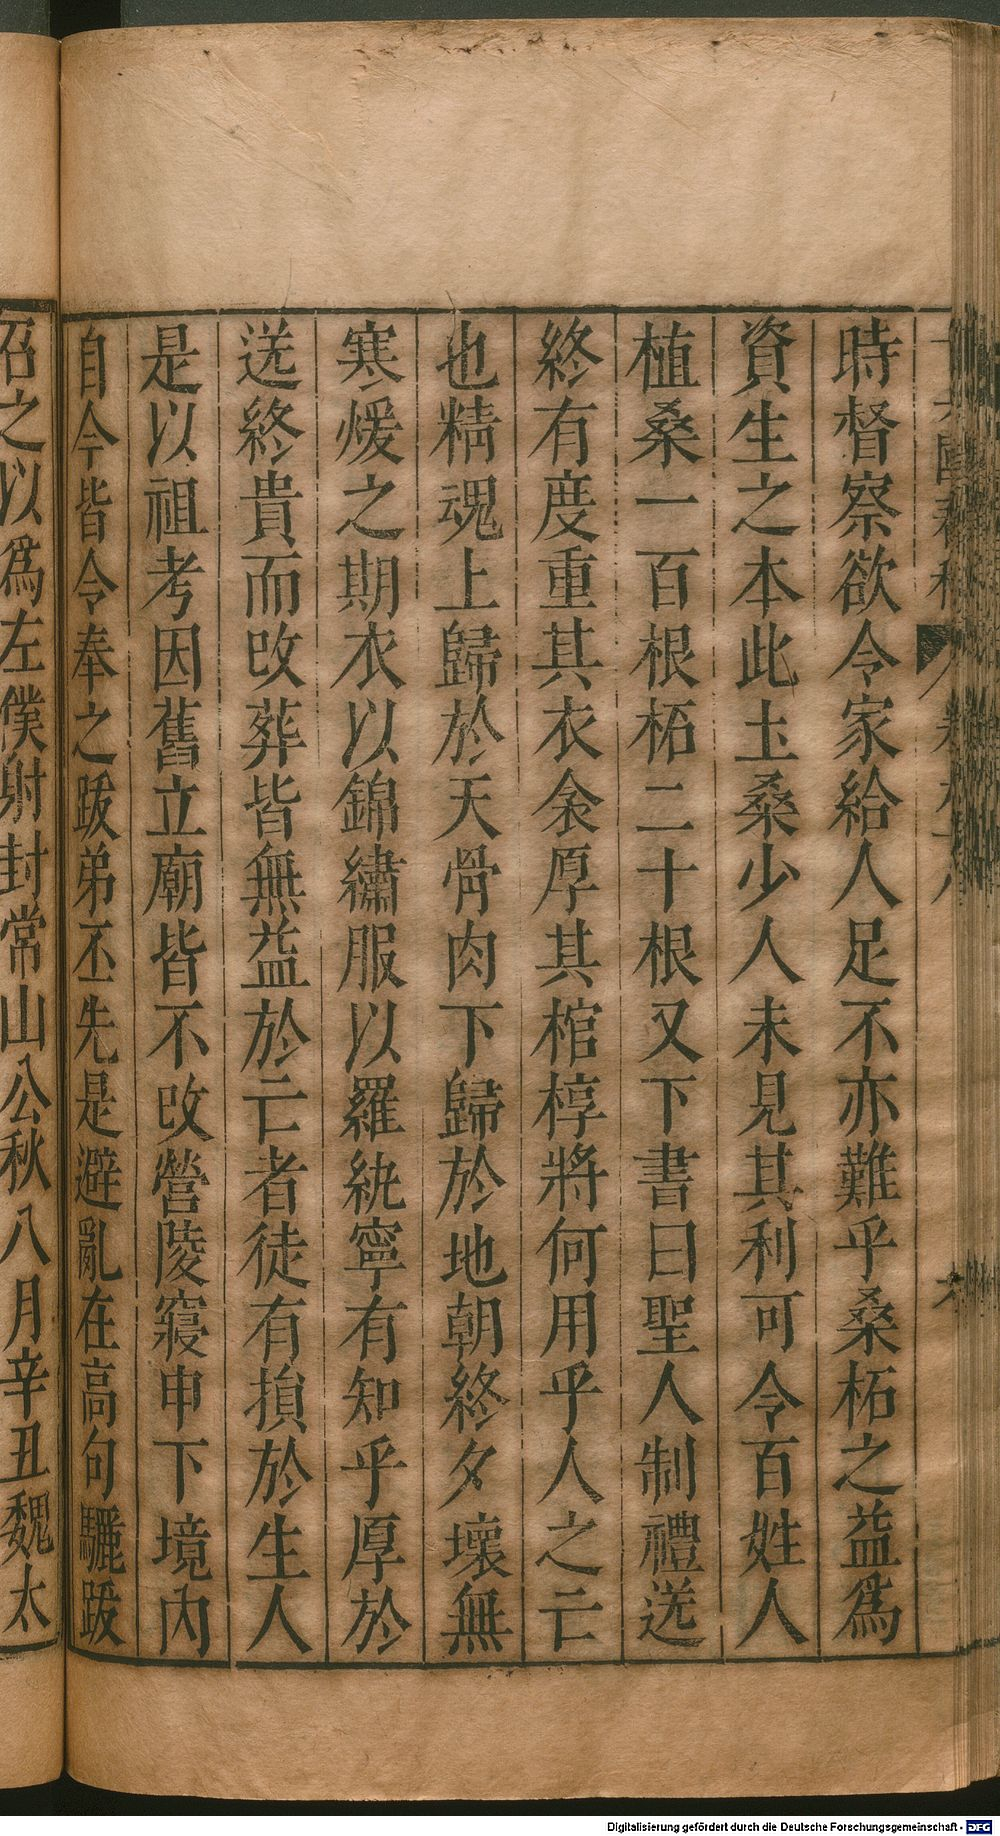 時督察欲令家給人足不亦難乎桑柘之益爲
資生之本此土桑少人未見其利可令百姓人
植桑一百根柘二十根又下書曰聖人制禮送
終有度重其衣衾厚其棺椁將何用乎人之亡
也精魂上歸於天骨肉下歸於地朝終夕壞無
寒煖之期衣以錦繡服以羅紈寧有知乎厚於
送終貴而改葬皆無益於亡者徒有損於生人
是以祖考因舊立廟皆不改營陵寢申下境内
自今皆令奉之跋弟丕先是避亂在高句驪跋
召之以爲左僕射封常山公秋八月辛丑魏太
Digitalisierung gefördert durch die Deutsche Forschungsgemeinschaft - DFG